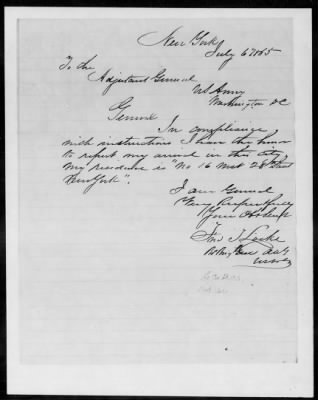 New York
July 6 1865
To the
Adjutant General
US Army
Washington DC
General
In compliance
with instructions I have the honor
to report my arrival in this city
my residence is "No 16 West 28th Street
New York".
I am General
Very Respectfully
Your Obt Servt
Locke